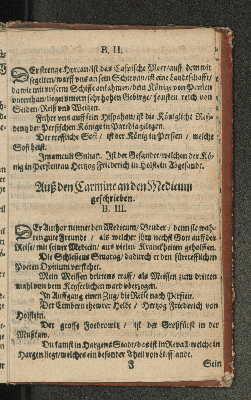 B. II.
DEr strenge Hyrcan/ist das Caspische Meer auff dem wir
segelten/ warff uns an sein Schwan/ ist eine Landschafft/
da wir mit unserm Schiffe
unterthan/ liegen sehr hohe Gebirge/ sonsten reich von
Seiden/ Reiß und Weitzen.
Früher uns auff sein Hispahan/ ist die Königliche Resi-
dentz der Persischen Könige in Parthia gelegen.
Der treffliche Sofi/ ist der König in Persien / welche
Sofi heist.
Imamculi Sultan. Ist der Gesandter/ welchen der Kö-
nig in Persien an Hertzog Friederich in Holstein abgesandt.
Auß den Carmine an den Medicum
geschrieben.
B. III.
DEr Author nennet den Medicum/ Bruder / denn sie wah-
ren gute Freunde / als welcher ihm nechst Gott auff der
Reise mit seiner Medicin aus vielen Kranckheiten geholffen.
Die Schlesischen Smarag/ dadurch er den fürtrefflichen
Poëten Opitium verstehet.
Mein Meissen drittens traff/ als Meissen zum dritten
mahl von den Keyserlichen ward überzogen.
In Auffgang einen Zug/ die Reise nach Persien.
Der Cimbern thewrer Held / Hertzog Friederich von
Holstein.
Der gross Foedrowitz / ist der Großfürst in der
Mußkaw.
Du kamst in Hargens Stadt/ das ist in Reval welche in
Hargen liegt/ welches ein besonder Theil von Lieffl. ande.
J Sein